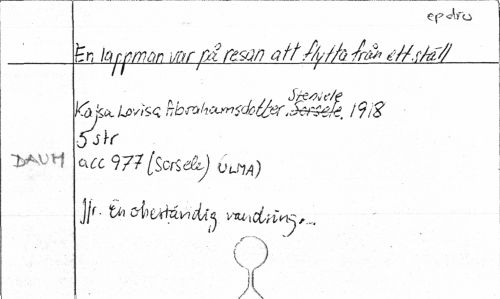 ep dru
En lappman var på resan att flytta från ett ställ
Stensele
Kajsa Lovisa Abrahamsdotter, Sorsele. 1918
5 str
DAUM acc 977 (Sorsele) ULMA)
Jfr. En obeständig vandring...